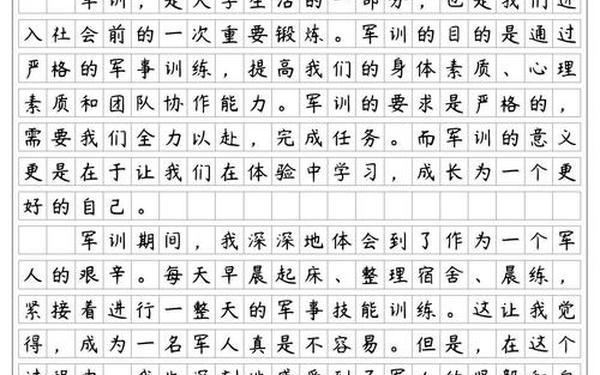 军训，是大学生活的一部分，也是我们进
入社会前的一次重要锻炼。军训的目的是通过
严格的军事训练，提高我们的身体素质、心理
素质和团队协作能力。军训的要求是严格的，
需要我们全力以赴，完成任务。而军训的意义
更是在于让我们在体验中学习，成长为一个更
好的自己。
军训期间，我深深地体会到了作为一个军
人的艰辛。每天早晨起床、整理宿舍、晨练，
紧接着进行一整天的军事技能训练。这让我觉
得，成为一名军人真是不容易。但是，在这个